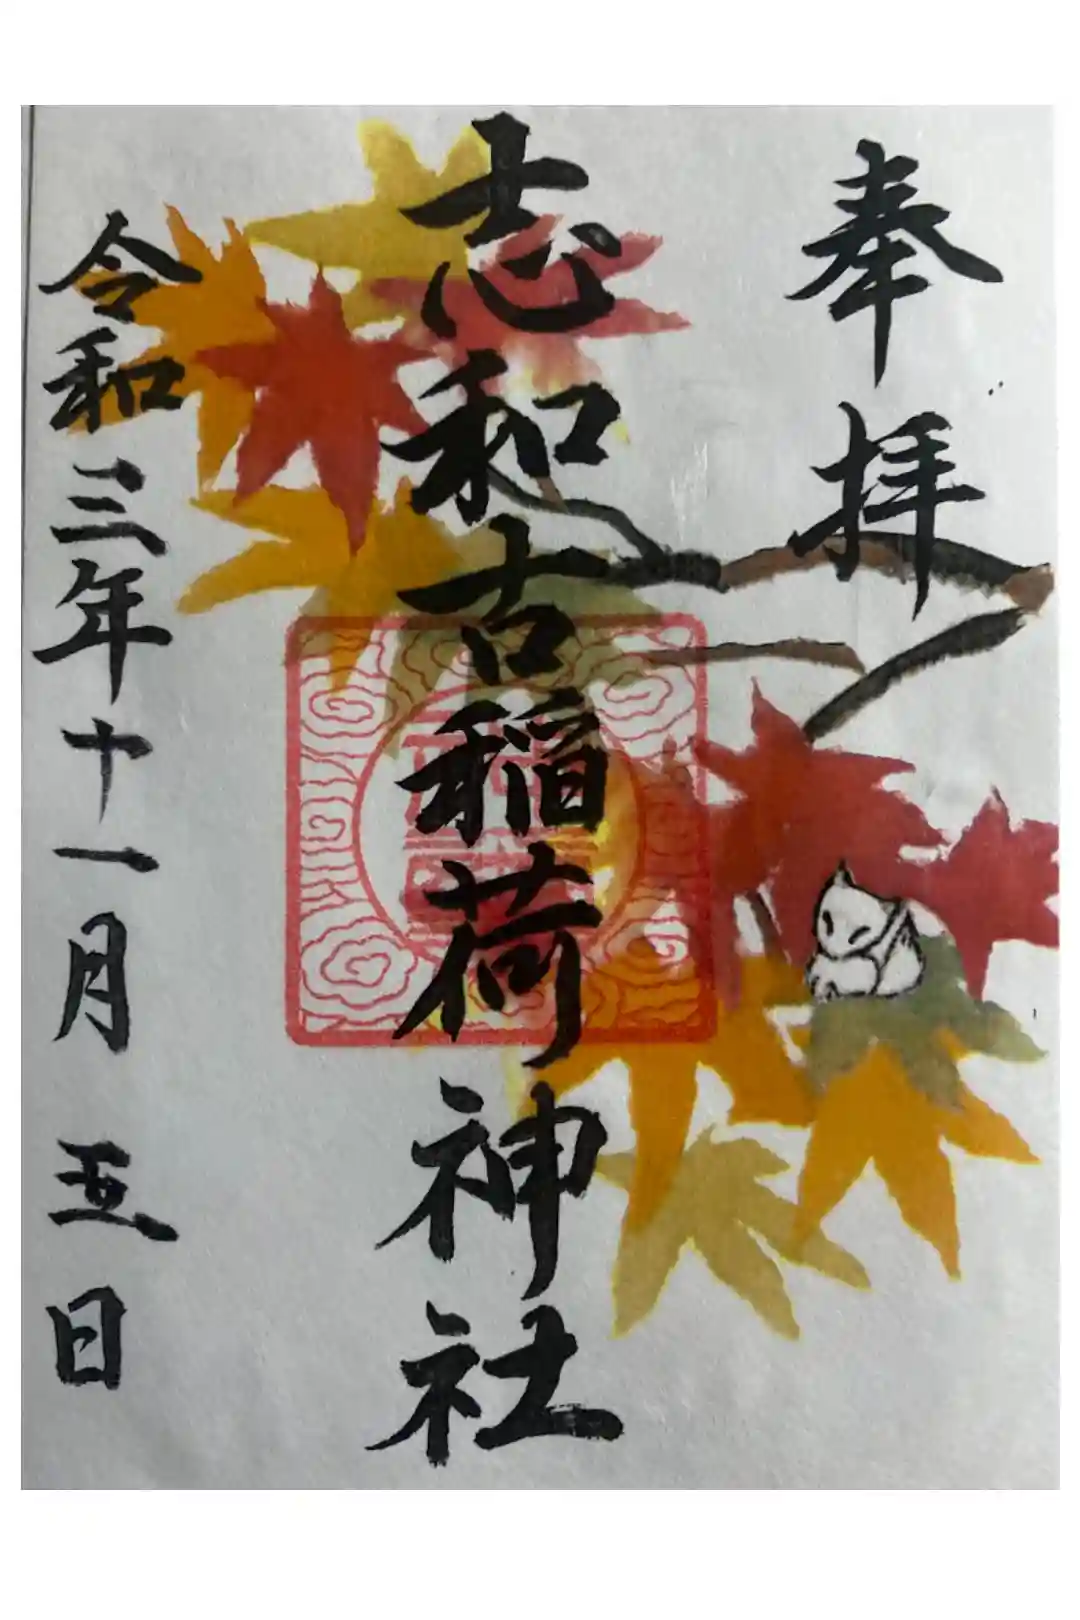 奉拝
志和古稲荷神社
令和三年十一月五日